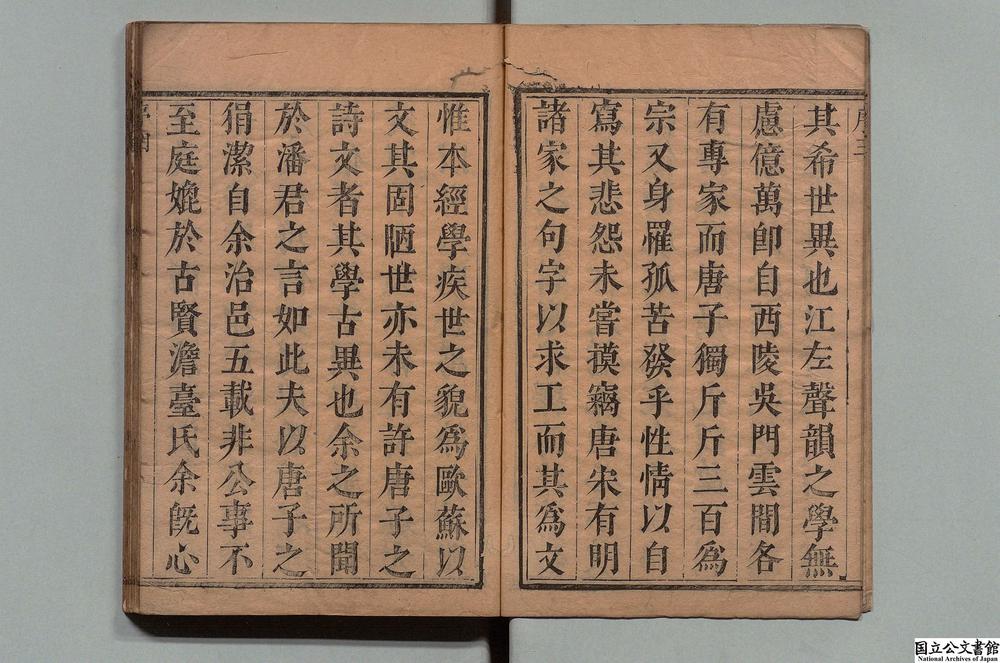 其希世異也江左聲韻之學無
慮億萬卽自西陵吳門雲間各
有專家而唐子獨斤斤三百為
宗又身罹孤苦發乎性情以自
寫其悲怨未嘗摸竊唐宋有明
諸家之句字以求工而其為文
惟本經學疾世之貌為歐蘇以
文其固陋世亦未有許唐子之
詩文者其學古異也余之所聞
於潘君之言如此夫以唐子之
狷潔自余治邑五載非公事不
至庭媲於古賢澹臺氏余旣心
国立公文書館
National Archives of Japan